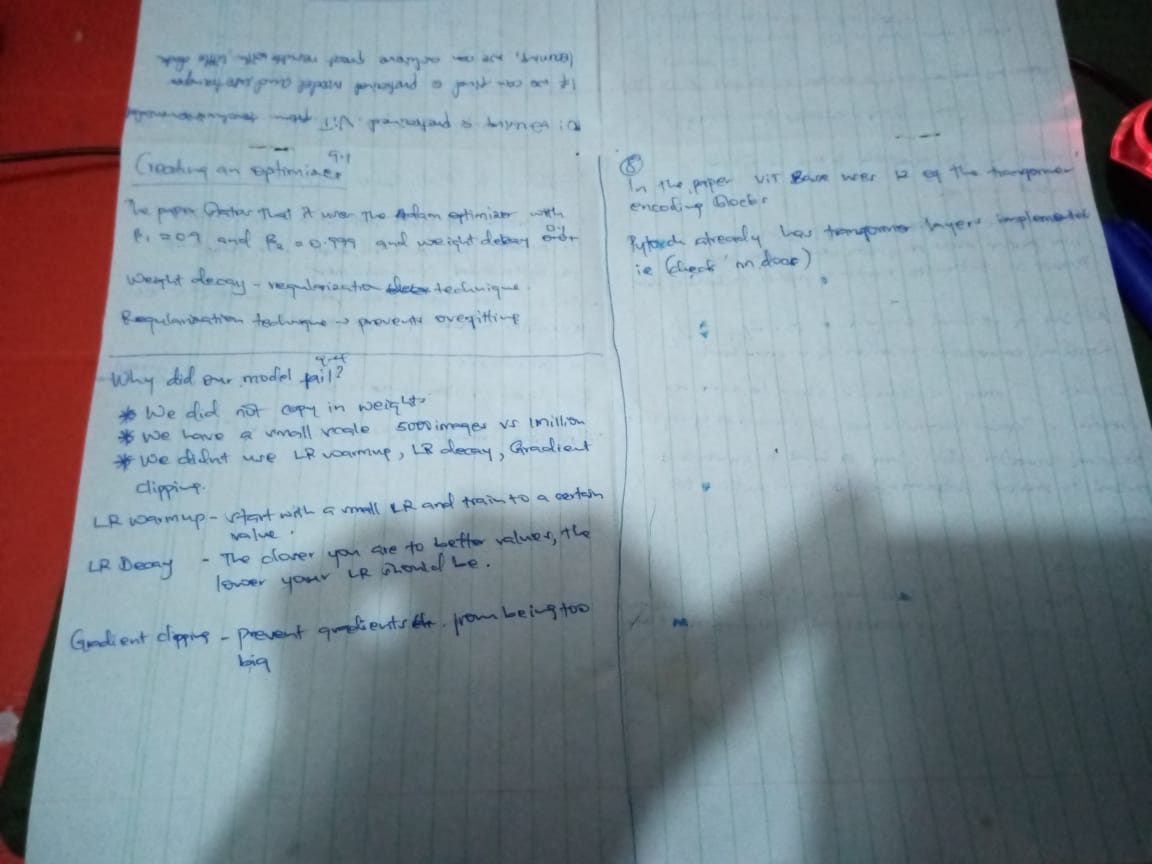 10: Using a pretrained ViT from
If we can find a pretrained model and use transfer
learning, we can achieve great results with little data
9.1
Creating an optimizer
The paper states that it uses the Adam optimizer with
β₁ = 0.9 and β₂ = 0.999 and weight decay 0.1
Weight decay - regularization technique.
Regularization technique → prevents overfitting
9.4
Why did our model fail?
* We did not copy in weights
* We have a small scale 5000 images vs 1 million
* We didnt use LR warmup, LR decay, Gradient
clipping.
LR warmup - start with a small LR and train to a certain
value.
LR Decay - The closer you are to better values, the
lower your LR should be.
Gradient clipping - prevent gradients from being too
big
8
In the paper ViT Base uses 12 of the transformer
encoding Blocks
Pytorch already has transformer layers implemented
ie (check in docs)